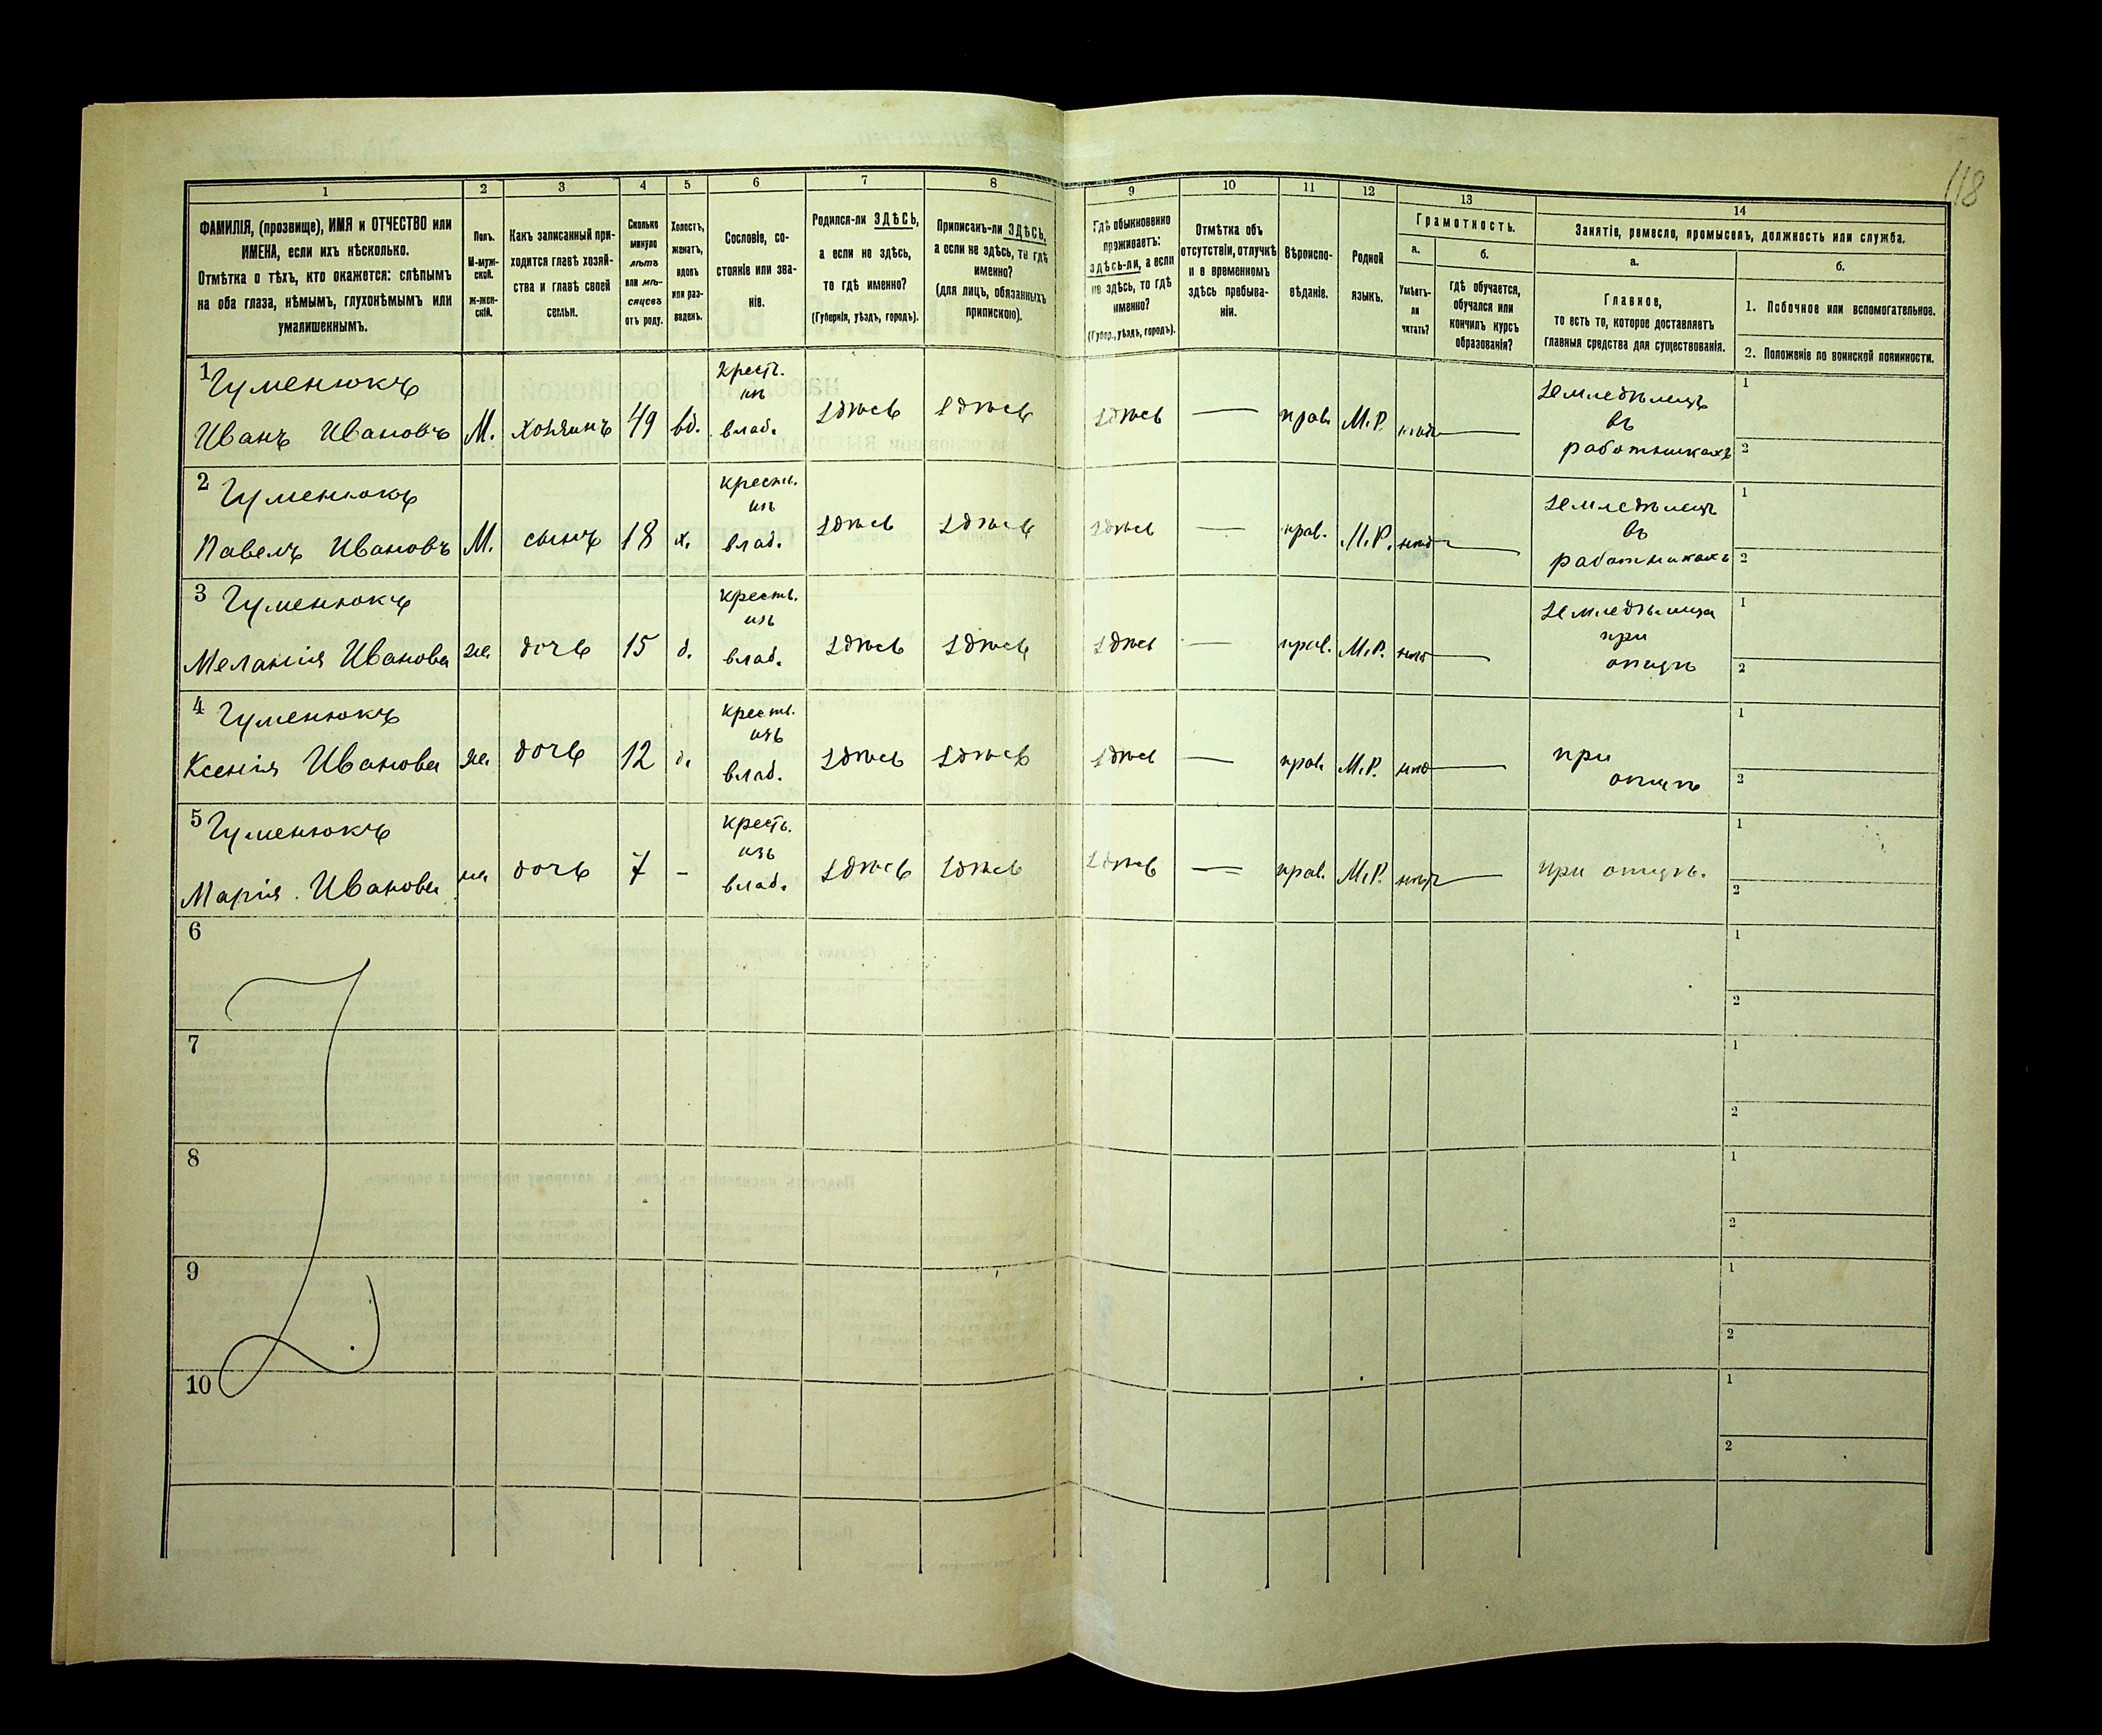 118
1 2 3 4 5 6 7 8 9 10 11 12 13 14
ФАМИЛІЯ, (прозвище), ИМЯ и ОТЧЕСТВО или
ИМЕНА, если ихъ нѣсколько.
Отмѣтка о тѣхъ, кто окажется: слѣпымъ
на оба глаза, нѣмымъ, глухонѣмымъ или
умалишеннымъ.
Полъ.
М-муж-
ской.
ж-жен-
скій.
Какъ записанный при-
ходится главѣ хозяй-
ства и главѣ своей
семьи.
Сколько
минуло
лѣтъ
или мѣ-
сяцевъ
отъ роду.
Холостъ,
женатъ,
вдовъ
или раз-
веденъ.
Сословіе, со-
стояніе или зва-
ніе.
Родился-ли ЗДѢСЬ,
а если не здѣсь,
то гдѣ именно?
(Губернія, уѣздъ, городъ).
Приписанъ-ли ЗДѢСЬ,
а если не здѣсь, то гдѣ
именно?
(для лицъ, обязанныхъ
припискою).
Гдѣ обыкновенно
проживаетъ:
здѣсь-ли, а если
не здѣсь, то гдѣ
именно?
(Губер., уѣздъ, городъ).
Отмѣтка объ
отсутствіи, отлучкѣ
и о временномъ
здѣсь пребыва-
ніи.
Вѣроиспо-
вѣданіе.
Родной
языкъ.
Грамотность.
а.
Умѣетъ-
ли
читать?
б.
гдѣ обучается,
обучался или
кончилъ курсъ
образованія?
Занятіе, ремесло, промыселъ, должность или служба.
а.
Главное,
то есть то, которое доставляетъ
главныя средства для существованія.
б.
1. Побочное или вспомогательное.
2. Положеніе по воинской повинности.
1 Гуменюкъ
Иванъ Ивановъ М. хозяинъ 49 вд. крест. изъ влад. здѣсь здѣсь здѣсь — прав. М.Р. — земледѣлецъ въ работникахъ 1 2
2 Гуменюкъ
Павелъ Ивановъ М. сынъ 18 х. крестъ. изъ влад. здѣсь здѣсь здѣсь — прав. М.Р. — земледѣлецъ въ работникахъ 1 2
3 Гуменюкъ
Меланія Иванова ж. дочь 15 д. крестъ. изъ влад. здѣсь здѣсь здѣсь — прав. М.Р. — при отцѣ 1 2
4 Гуменюкъ
Ксенія Иванова ж. дочь 12 д. крестъ. изъ влад. здѣсь здѣсь здѣсь — прав. М.Р. — при отцѣ 1 2
5 Гуменюкъ
Марія Иванова ж. дочь 7 - кресть. изъ влад. здѣсь здѣсь здѣсь — прав. М.Р. — при отцѣ. 1 2
6 1 2
7 1 2
8 1 2
9 1 2
10 1 2